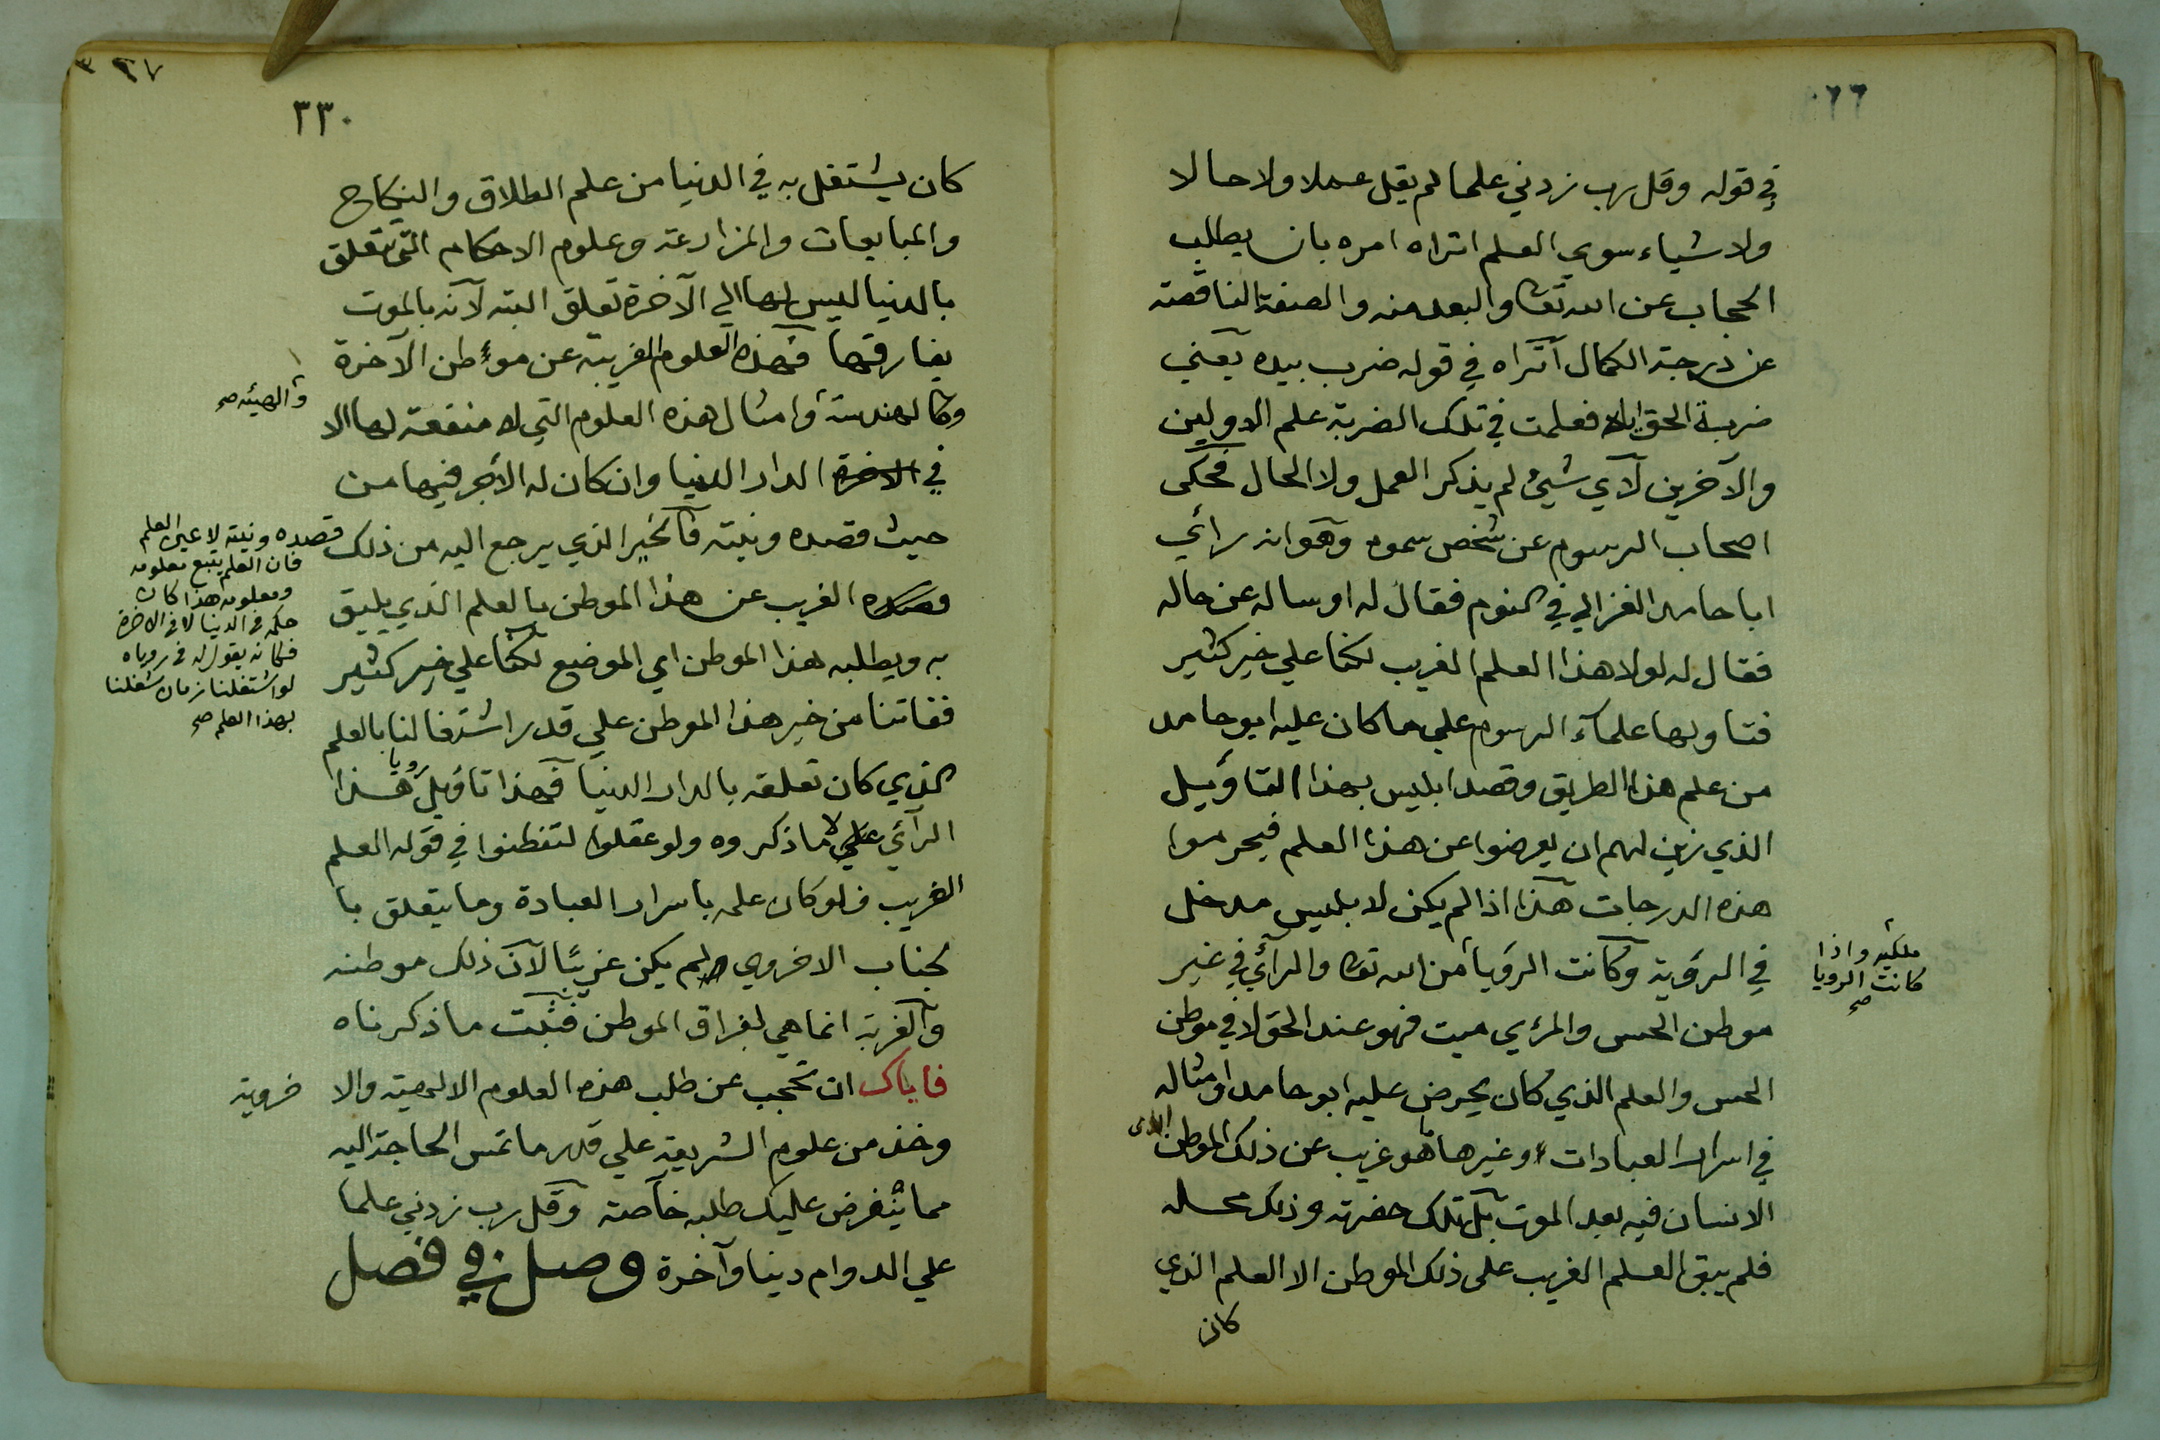 ٠٦٦
في قوله وقل رب زدني علما لم يقل عملا ولا حالا
ولا شياء سوي العلم اتراه امره بان يطلب
الحجاب عن الله تعا والبعد منه والصفة الناقصة
عن درجة الكمال اتراه في قوله ضرب بيده يعني
ضربة الحق اياه فعلمت في تلك الضربة علم الاولين
والآخرين لاي شيئ لم يذكر العمل ولا الحال فحكى
اصحاب الرسوم عن شخص سموه وهو انه رائي
ابا حامد الغزالي في النوم فقال له او ساله عن حاله
فقال له لولا هذا العلم الغريب لكنا علي خير كثير
فتاولها علماء الرسوم علي ما كان عليه ابو حامد
من علم هذا الطريق وقصد ابليس بهذا التاويل
الذي زين لهم ان يعرضوا عن هذا العلم فيحرموا
هذه الدرجات هذا اذا لم يكن لابليس مدخل
في الرؤية وكانت الرؤيا من الله تعا والرائي في غير
موطن الحس والمرئي ميت فهو عند الحق لا في موطن
الحس والعلم الذي كان يحرض عليه ابو حامد او مثاله
في اسرار العبادات وغيرها ما هو غريب عن ذلك الموطن الذى
الانسان فيه بعد الموت بل تلك حضرته وذلك محله
فلم يبق العلم الغريب على ذلك الموطن الا العلم الذي
كان
ملكيه واذا
كانت الرويا
صح
٣٦٧
٣٣٠
كان يشتغل به في الدنيا من علم الطلاق والنكاح
والمبايعات والمزارعة وعلوم الاحكام التى تتعلق
بالدنيا ليس لها الي الآخرة تعلق البته لانه بالموت
يفارقها فهذه العلوم الغريبة عن موطن الآخرة
وكالهندسة وامثال هذه العلوم التي لا منفعة لها الا
في الاخرة الدار الدنيا وان كان له الاجر فيها من
حيث قصده ونيته فالخير الذي يرجع اليه من ذلك
قصده الغريب عن هذا الموطن بالعلم الذي يليق
به ويطلبه هذا الموطن اي الموضع لكنا علي خير كثير
ففاتنا من خير هذا الموطن علي قدر اشتغالنا بالعلم
الذي كان تعلقه بالدار الدنيا فهذا تاويل رويا هذا
الرائي علي لا ما ذكروه ولو عقلوا لتفطنوا في قوله العلم
الغريب فلو كان علمه باسرار العبادة وما يتعلق با
لجناب الاخروي لم يكن غريبا لان ذلك موطنه
والغربة انما هي لفراق الموطن فثبت ما ذكرناه
فاياك ان تحجب عن طلب هذه العلوم الالهية والا
خروية
وخذ من علوم الشريعة علي قدر ما تمس الحاجة اليه
مما يفرض عليك طلبه خاصة وقل رب زدني علما
علي الدوام دينا وآخرة وصل في فصل
والهيئه صح
قصده ونيته لا عين العلم
فان العلم يتبع معلومه
ومعلومه هذا كان
حكمه في الدنيا لا في الاخرة
فكانه يقول له في روياه
لو اشتغلنا زمان شغلنا
بهذا العلم صح